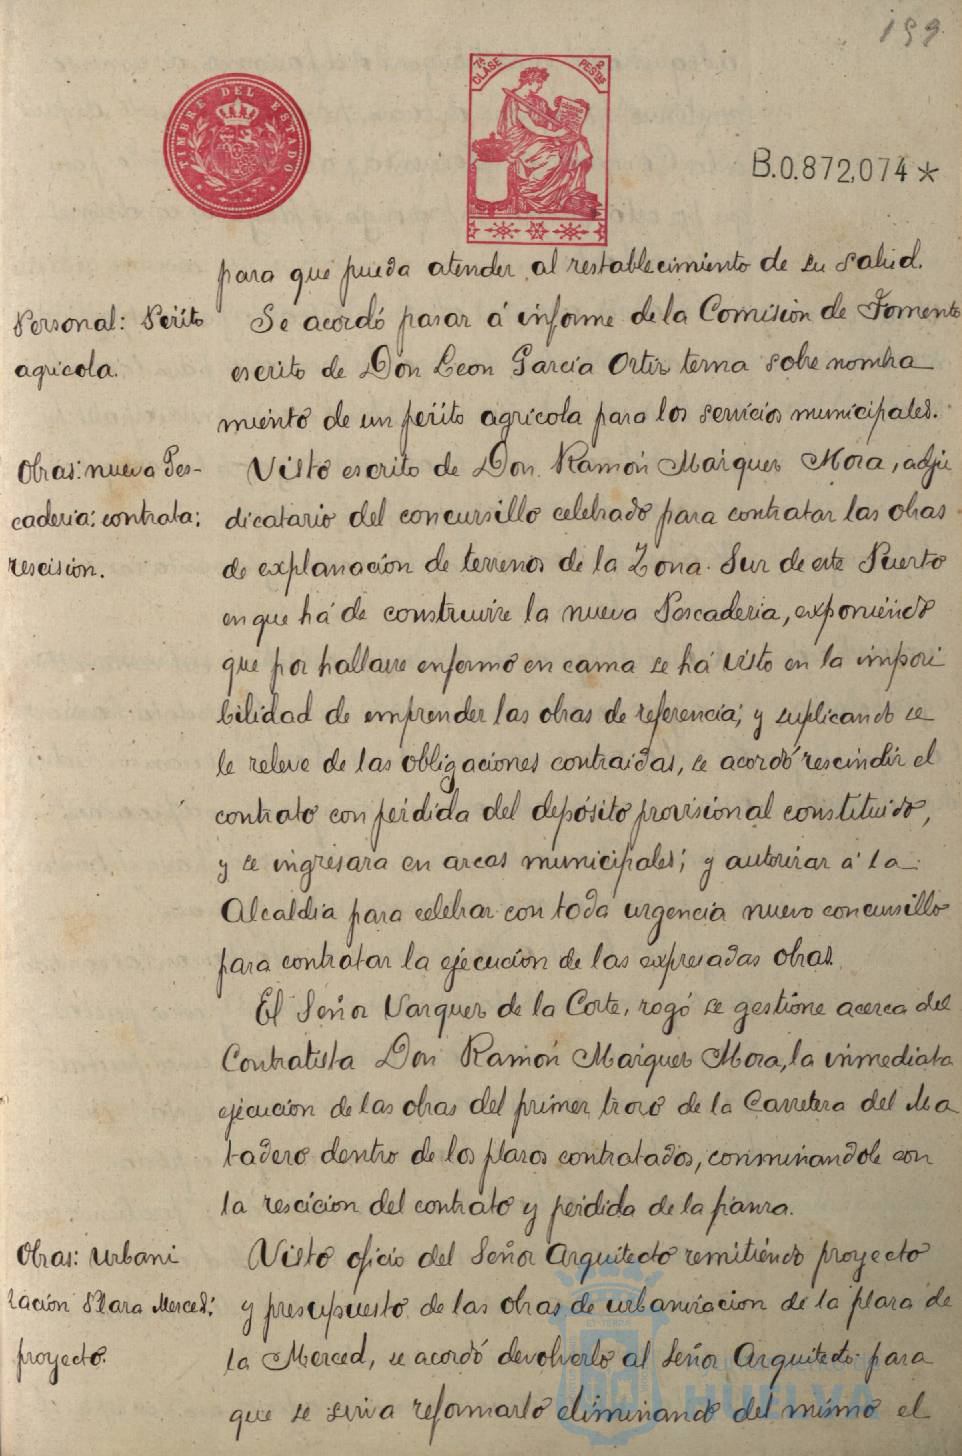 199
TIMBRE DEL ESTADO
7ª CLASE 2 PESTAS
B.0.872,074*
para que pueda atender al restablecimiento de su salud.
Personal: Perito
agrícola.
Se acordó pasar á informe de la Comisión de Fomento
escrito de Don Leon García Ortiz terna sobre nombra
miento de un périto agrícola para los servicios municipales.
Obras: nueva Pes-
cadería: contrata:
rescisión.
Visto escrito de Don Ramón Márquez Mora, adju
dicatario del concursillo celebrado para contratar las obras
de explanación de terrenos de la Zona Sur de este Puerto
en que há de construirse la nueva Pescaderia, exponiéndo
que por hallarse enfermo en cama se há visto en la imposi
bilidad de emprender las obras de referencia; y suplicando se
le releve de las obligaciones contraidas, se acordó rescindir el
contrato con pérdida del depósito provisional constituido,
y se ingresara en arcas municipales; y autorizar á la
Alcaldía para celebrar con toda urgencia nuevo concursillo
para contratar la ejecución de las expresadas obras.
El Señor Vazquez de la Corte, rogó se gestione acerca del
Contratista Don Ramón Márquez Mora, la inmediata
ejecución de las obras del primer trozo de la Carretera del Ma
tadero dentro de los plazos contratados, conminándole con
la rescición del contrato y pérdida de la fianza.
Obras: Urbani
zación Plaza Merced:
proyecto.
Visto oficio del Señor Arquitecto remitiéndo proyecto
y presupuesto de las obras de urbanización de la plaza de
la Merced, se acordó devolverlo al Señor Arquitecto para
que se sirva reformarlo eliminando del mismo el
HUELVA